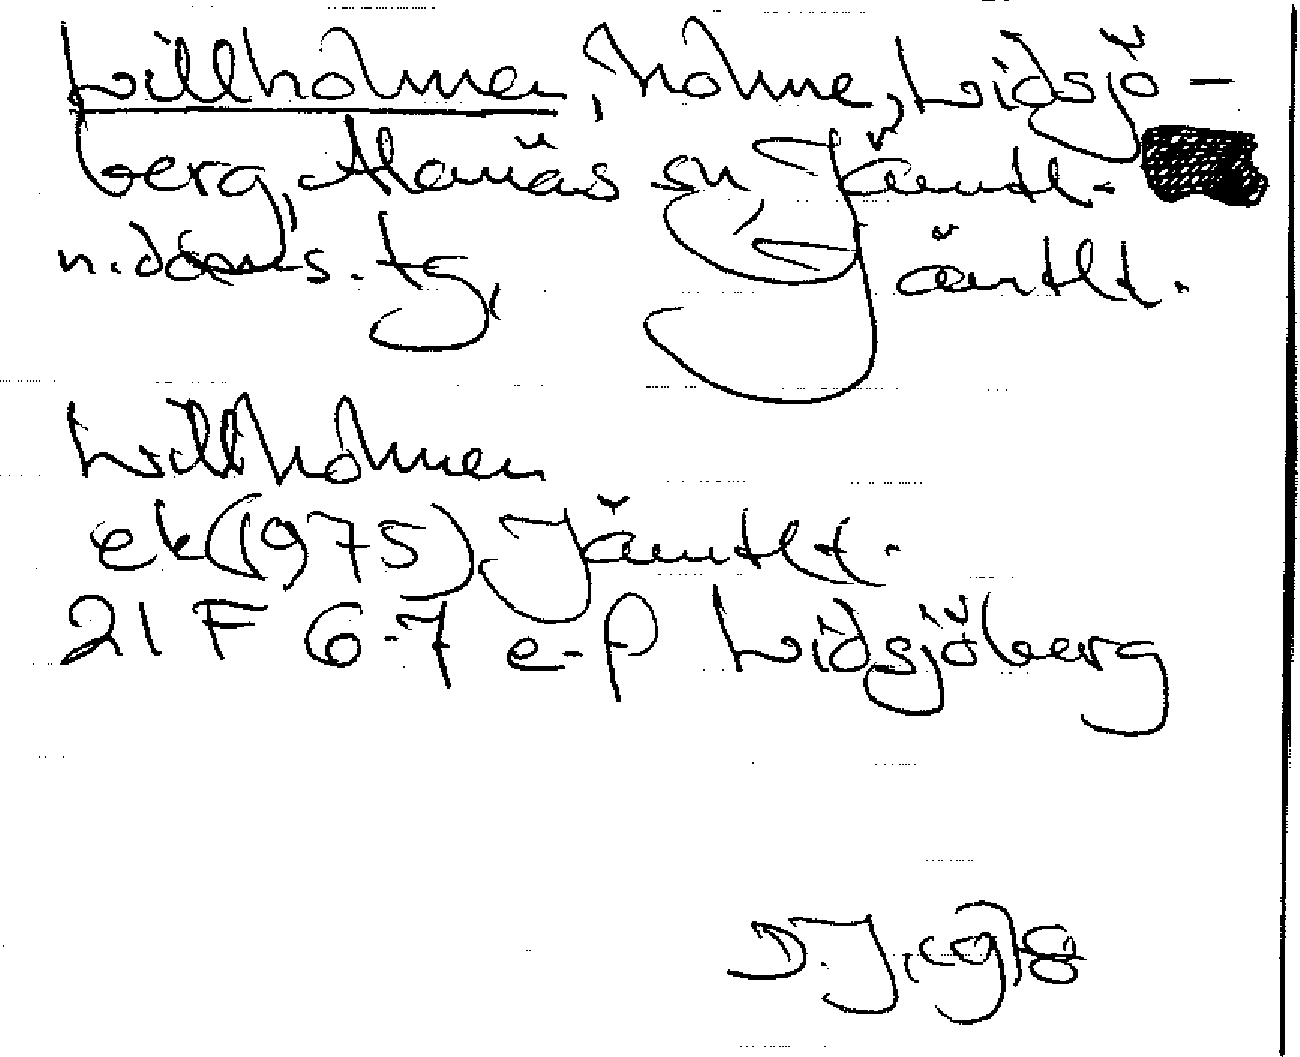 Lillholmen, holme, Lidsjö-
berg, Alanäs sn Jämtl.
n. doms. tg, Jämtlt.
Lillholmen
ek (1975) Jämtlt.
21 F 6-7 e-f Lidsjöberg